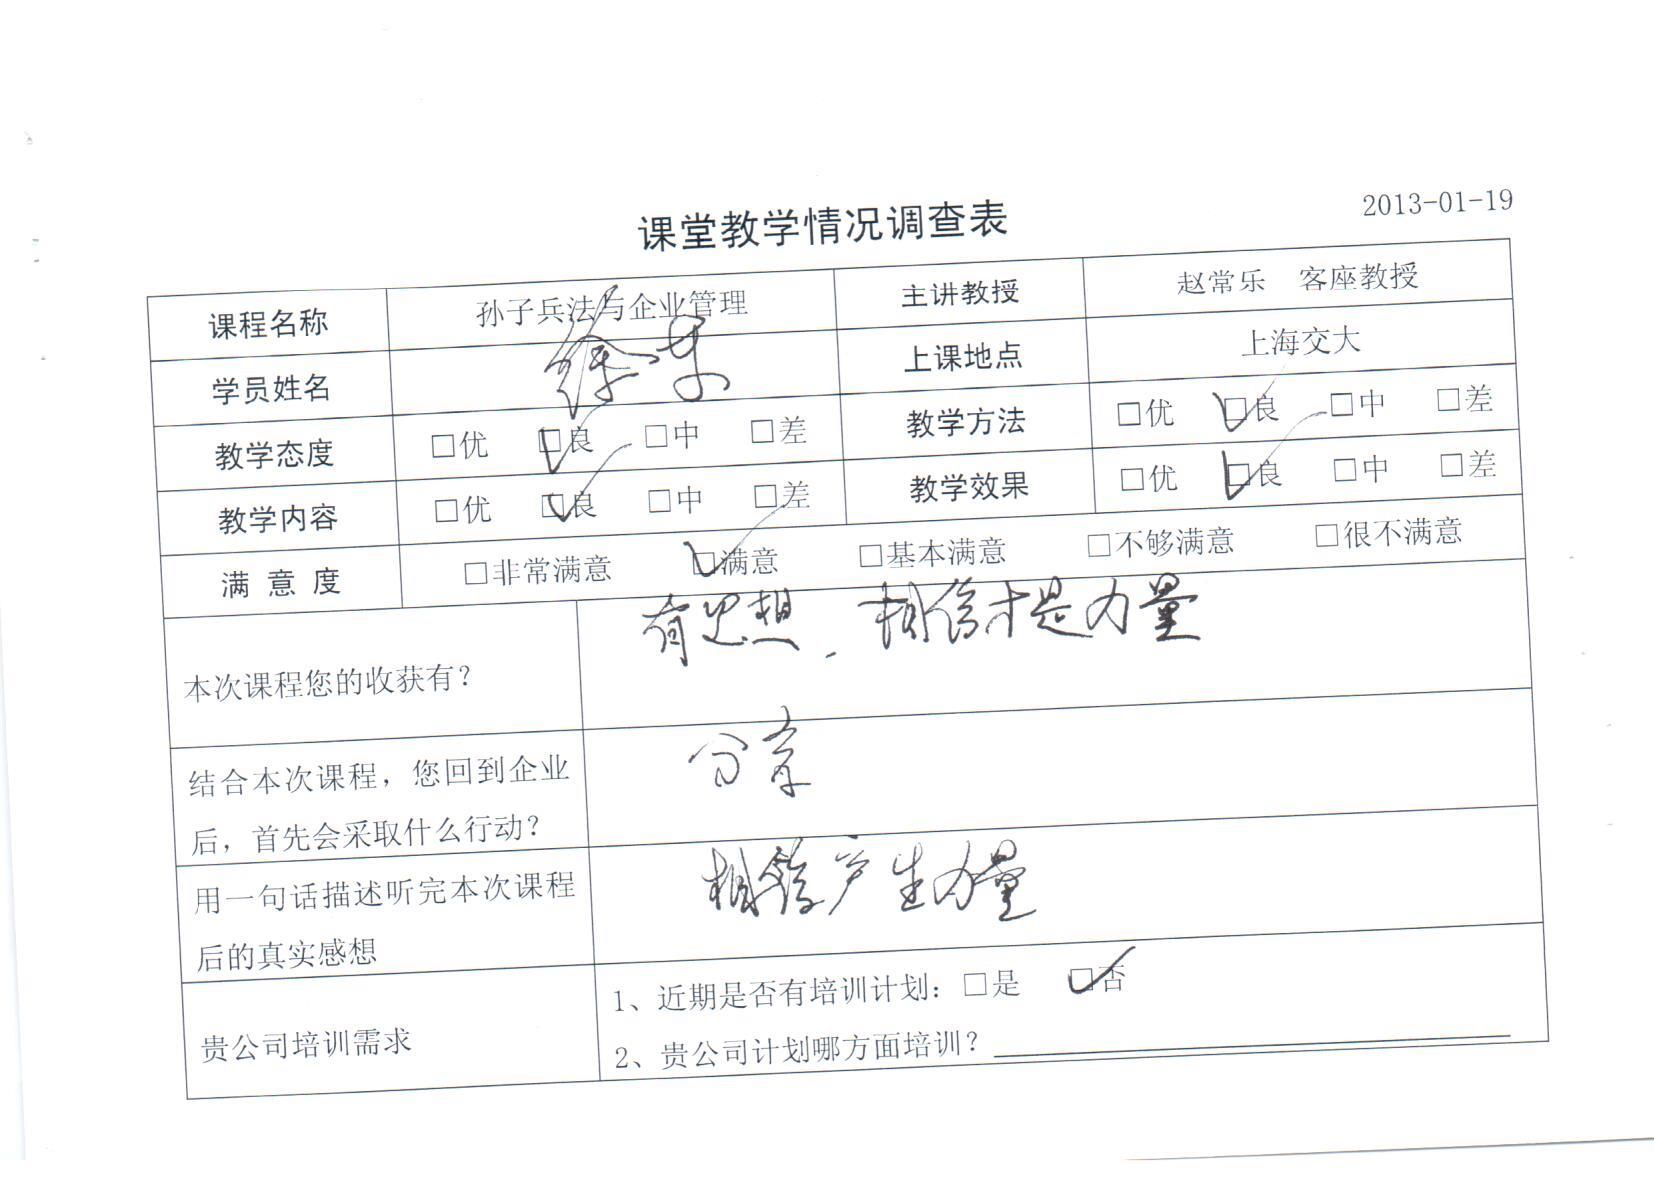 2013-01-19
课堂教学情况调查表
课程名称 孙子兵法与企业管理 主讲教授 赵常乐 客座教授
学员姓名 徐 上课地点 上海交大
教学态度 □优 □良 □中 □差 教学方法 □优 □良 □中 □差
教学内容 □优 □良 □中 □差 教学效果 □优 □良 □中 □差
满 意 度 □非常满意 □满意 □基本满意 □不够满意 □很不满意
有思想、相信才是力量
本次课程您的收获有？
分享
结合本次课程，您回到企业
后，首先会采取什么行动？
相信产生力量
用一句话描述听完本次课程
后的真实感想
贵公司培训需求
1、近期是否有培训计划：□是 □否
2、贵公司计划哪方面培训？